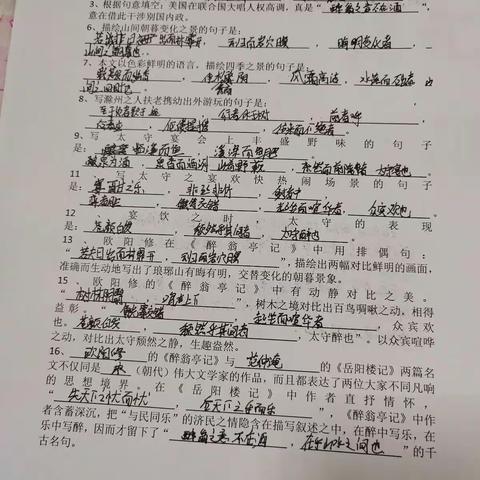 3、根据句意填空:美国在联合国大唱人权高调,真是“醉翁之意不在酒”,
意在借此干涉别国内政。
6、描绘山间朝暮变化之景的句子是:
若夫日出而林霏开 云归而岩穴暝 晦明变化者
山间之朝暮也。
7、本文以色彩鲜明的语言,描绘四季之景的句子是:
风霜高洁 水落而石出者 山
间之四时也。
8、写滁州之人扶老携幼出外游玩的句子是:
至于负者歌于途 行者休于树 前者呼
后者应 伛偻提携 往来而不绝者。
9、写太守宴会上丰盛野味的句子
是:
酿泉为酒 泉香而酒洌 山肴野蔌 杂然而前陈者 太守宴也。
11、写太守之宴欢快热闹场景的句子
是: 宴酣之乐 非丝非竹 射者中
弈者胜 觥筹交错 起坐而喧哗者 众宾欢也。
12、宴饮之时,太守的表现
是:苍颜白发 颓然乎其间者 太守醉也。
13、欧阳修在《醉翁亭记》中用排偶句:
“若夫日出而林霏开 云归而岩穴暝”,描绘出两幅对比鲜明的画面,
准确而生动地写出了琅琊山有晦有明,交替变化的朝暮景象。
15、欧阳修的《醉翁亭记》中有动静对比之美。
“树林阴翳,鸣声上下”,树木之境对比出百鸟啁啾之动,相得
益彰。“觥筹交错 起坐而喧哗者,众宾欢
也。苍颜白发 颓然乎其间者,太守醉也”。以众宾喧哗
之动,对比出太守颓然之静,生趣盎然。
16、欧阳修的《醉翁亭记》与范仲淹的《岳阳楼记》两篇名
文不仅同是宋(朝代)伟大文学家的作品,而且都表达了两位大家不同凡响
的思想境界。在《岳阳楼记》中作者直抒情怀,
“先天下之忧而忧,后天下之乐而乐”,《醉翁亭记》中作
者含蓄深沉,把“与民同乐”的济民之情隐含在描写叙述之中,在醉中写乐,在
乐中写醉,因而才留下了“醉翁之意不在酒,在乎山水之间也”的千
古名句。